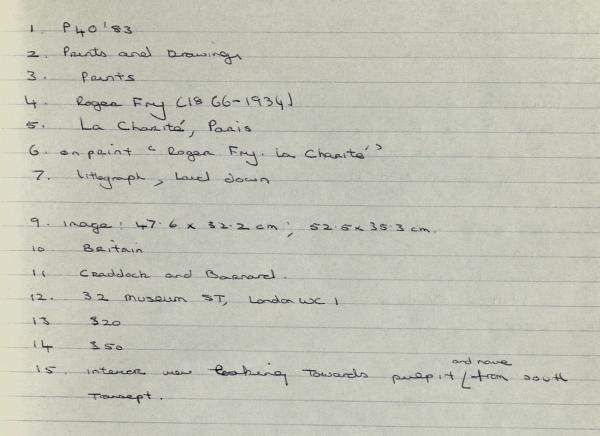 1. P40'83
2. Prints and Drawings
3. Prints
4. Roger Fry (1866-1934)
5. La Charité, Paris
6. on print "Roger Fry. La Charité"
7. lithograph, laid down
9. image: 47.6 x 32.2 cm; 52.5 x 35.3 cm.
10 Britain
11 Craddock and Barnard.
12. 32 Museum ST, London WC1
13 $20
14 $50
15. interior view looking Towards pulpit and nave from south
Transept.